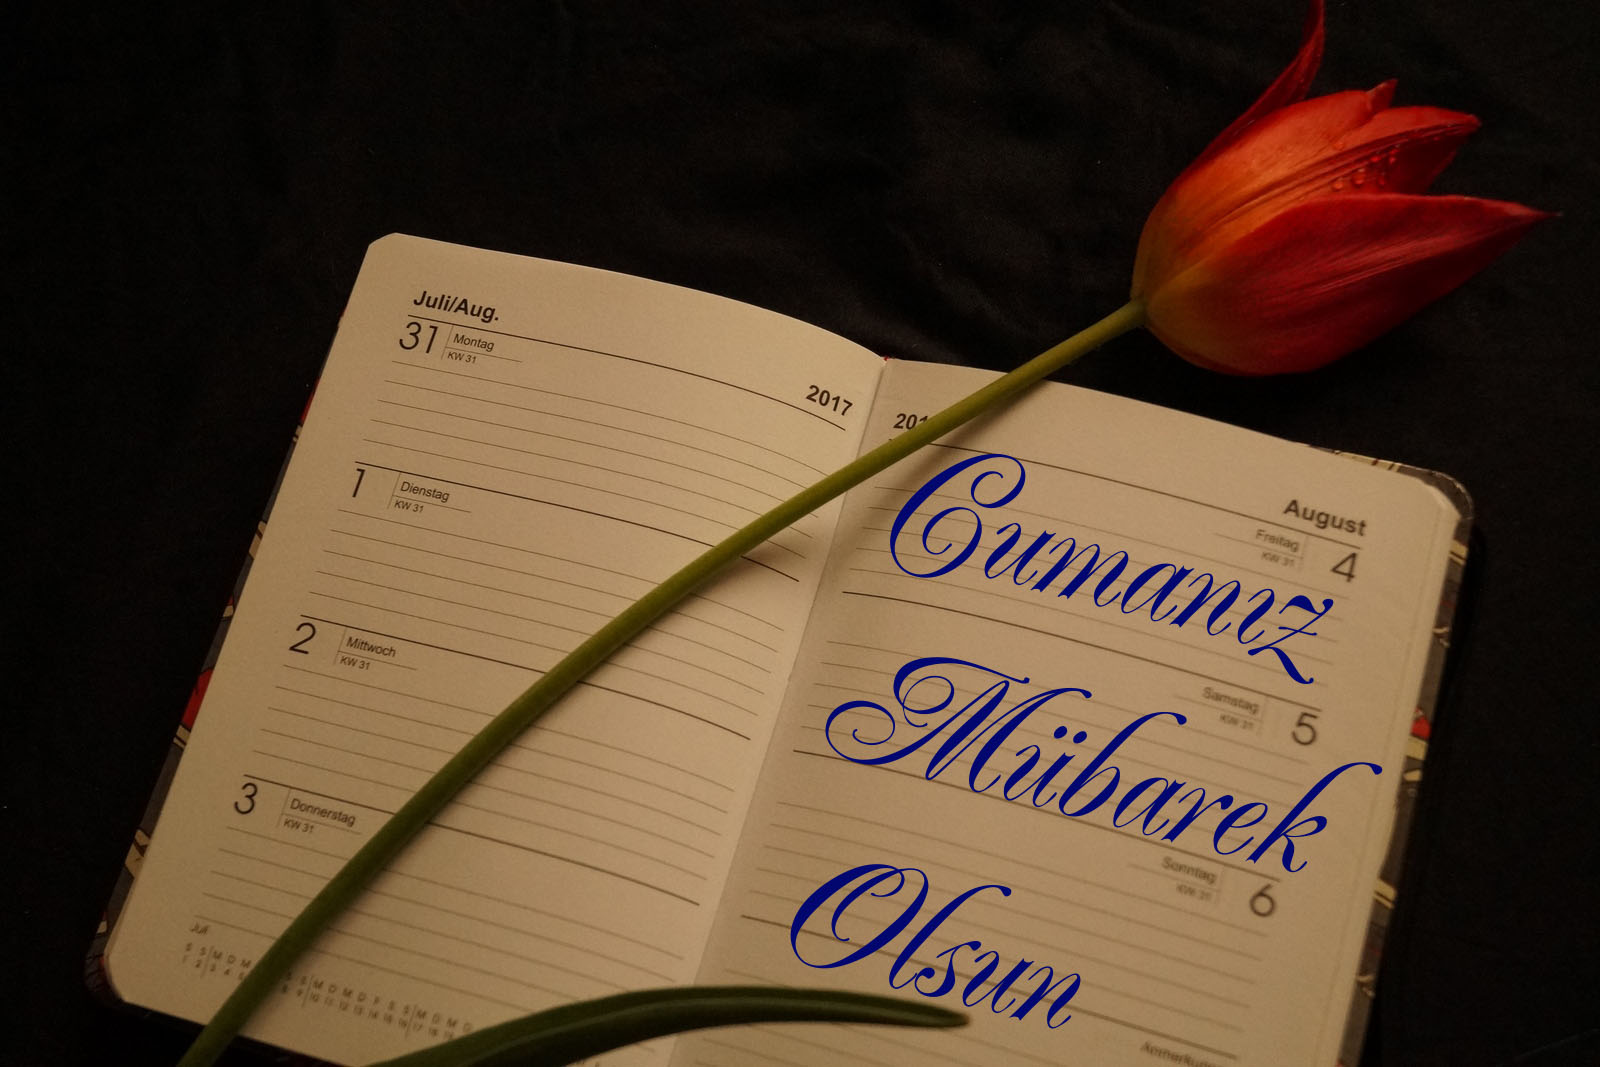 Juli/Aug.
31 Montag
KW 31
2017
1 Dienstag
KW 31
2 Mittwoch
KW 31
3 Donnerstag
KW 31
Juli
201
August
Freitag 4
KW 31
Samstag 5
KW 31
Sonntag 6
KW 31
Cumanız
Mübarek
Olsun